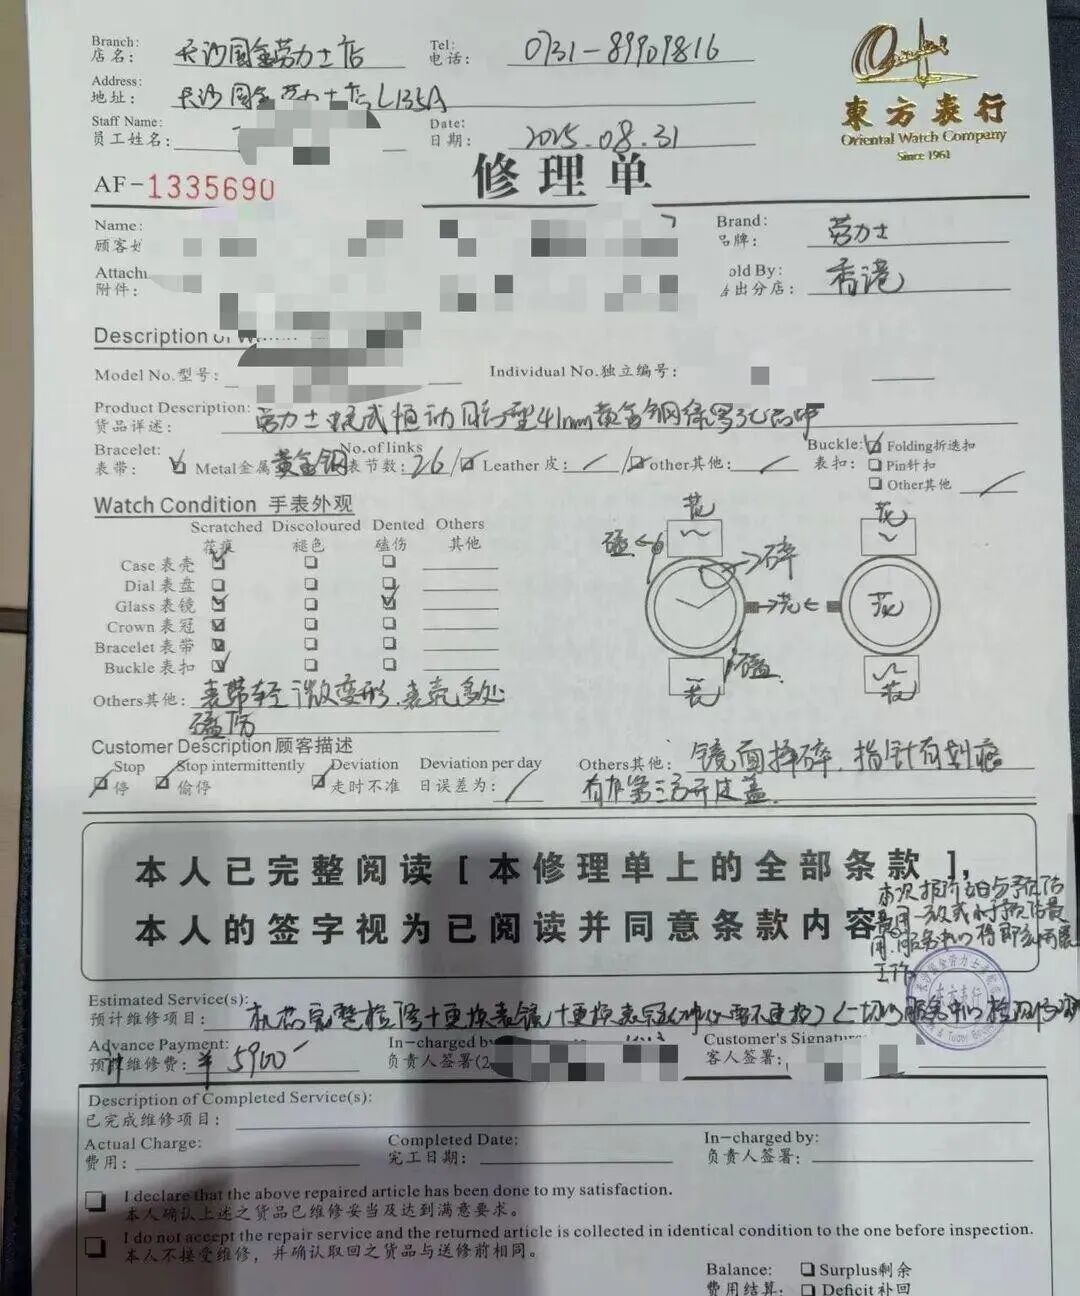 Branch:
店名: 长沙国金劳力士店
Tel:
电话: 0731-89909816
Address:
地址: 长沙国金劳力士店L135A
Staff Name:
员工姓名:
Date:
日期: 2025.08.31
東方表行
Oriental Watch Company
Since 1961
AF-1335690
修理单
Name:
顾客
Brand:
品牌: 劳力士
Attach
附件:
old By:
出分店: 香港
Description
Model No.型号:
Individual No.独立编号:
Product Description:
货品详述: 劳力士蚝式恒动日志型41mm黄金钢
Bracelet:
表带: Metal金属 黄金钢
No.of links
表节数: 26
Leather 皮:
other其他:
Buckle:
表扣:
Folding折迭扣
Pin针扣
Other其他
Watch Condition 手表外观
Scratched Discoloured Dented Others
花痕 褪色 磕伤 其他
Case 表壳
Dial 表盘
Glass 表镜
Crown 表冠
Bracelet 表带
Buckle 表扣
花
花
磕
碎
花
花
磕
花
花
Others其他: 表带轻微变形、表壳多处
磕伤
Customer Description 顾客描述
Stop
停
Stop intermittently
偷停
Deviation
走时不准
Deviation per day
日误差为:
Others其他: 镜面摔碎、指针有划痕
有在第三方开过盖
本人已完整阅读 [ 本修理单上的全部条款 ],
本人的签字视为已阅读并同意条款内容
本次报价若与预估
费用一致或小于预估费
用,服务中心将即刻开展
工作
东方表行
Estimated Service(s):
预计维修项目: 机芯完整检修+更换表镜+更换表冠
Advance Payment:
预计维修费: ¥5900
In-charged by
负责人签署
Customer's Signature
客人签署:
Description of Completed Service(s):
已完成维修项目:
Actual Charge:
费用:
Completed Date:
完工日期:
In-charged by:
负责人签署:
I declare that the above repaired article has been done to my satisfaction.
本人确认上述之货品已维修妥当及达到满意要求。
I do not accept the repair service and the returned article is collected in identical condition to the one before inspection.
本人不接受维修，并确认取回之货品与送修前相同。
Balance:
费用结算:
Surplus剩余
Deficit补回